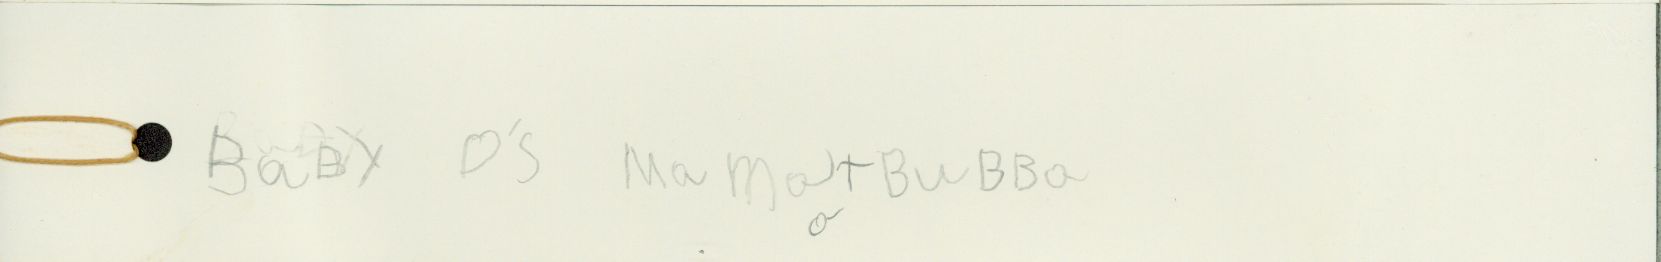 BaBY D's MaMa + BuBBa
a